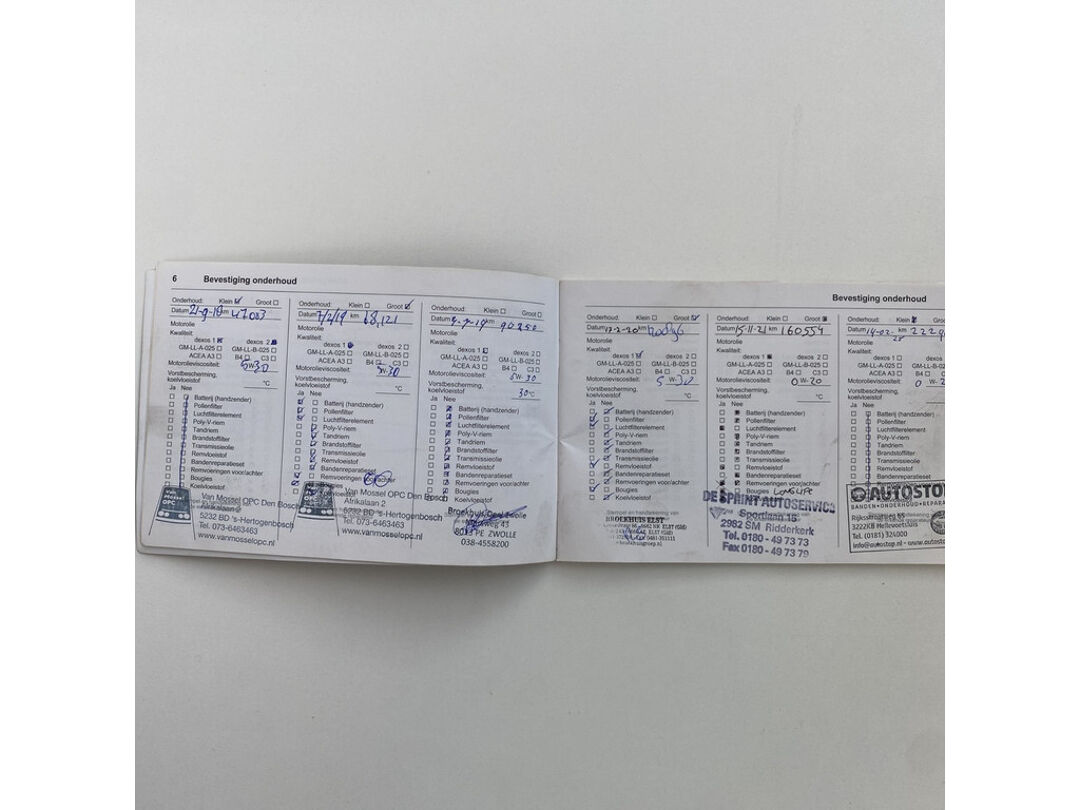 6 Bevestiging onderhoud
Onderhoud: Klein Groot
Datum 21-9-18 km 47083
Motorolie
Kwaliteit:
dexos 1 dexos 2
GM-LL-A-025 GM-LL-B-025
ACEA A3 B4 C3
Motorolieviscositeit: 5W30
Vorstbescherming,
koelvloeistof °C
Ja Nee
Batterij (handzender)
Pollenfilter
Luchtfilterelement
Poly-V-riem
Tandriem
Brandstoffilter
Transmissieolie
Remvloeistof
Bandenreparatieset
Remvoeringen voor/achter
Bougies
Koelvloeistof
Van Mossel OPC Den Bosch
Afrikalaan 2
5232 BD 's-Hertogenbosch
Tel. 073-6463463
www.vanmosselopc.nl
Onderhoud: Klein Groot
Datum 7/2/19 km 68,121
Motorolie
Kwaliteit:
dexos 1 dexos 2
GM-LL-A-025 GM-LL-B-025
ACEA A3 B4 C3
Motorolieviscositeit: 5W-30
Vorstbescherming,
koelvloeistof °C
Ja Nee
Batterij (handzender)
Pollenfilter
Luchtfilterelement
Poly-V-riem
Tandriem
Brandstoffilter
Transmissieolie
Remvloeistof
Bandenreparatieset
Remvoeringen voor/achter
Bougies
Van Mossel OPC Den Bosch
Afrikalaan 2
5232 BD 's-Hertogenbosch
Tel. 073-6463463
www.vanmosselopc.nl
Onderhoud: Klein Groot
Datum km 90250
Motorolie
Kwaliteit:
dexos 1 dexos 2
GM-LL-A-025 GM-LL-B-025
ACEA A3 B4 C3
Motorolieviscositeit: 5W-30
Vorstbescherming,
koelvloeistof 30°C
Ja Nee
Batterij (handzender)
Pollenfilter
Luchtfilterelement
Poly-V-riem
Tandriem
Brandstoffilter
Transmissieolie
Remvloeistof
Bandenreparatieset
Remvoeringen voor/achter
Bougies
Koelvloeistof
Broekhuis Opel Zwolle
PE ZWOLLE
038-4558200
Bevestiging onderhoud
Onderhoud: Klein Groot
Datum km
Motorolie
Kwaliteit:
dexos 1 dexos 2
GM-LL-A-025 GM-LL-B-025
ACEA A3 B4 C3
Motorolieviscositeit: 5 W30
Vorstbescherming,
koelvloeistof °C
Ja Nee
Batterij (handzender)
Pollenfilter
Luchtfilterelement
Poly-V-riem
Tandriem
Brandstoffilter
Transmissieolie
Remvloeistof
Bandenreparatieset
Remvoeringen voor/achter
Bougies
Koelvloeistof
Stempel en handtekening van
BROEKHUIS ELST
Onderhoud: Klein Groot
Datum 15-11-21 km 160554
Motorolie
Kwaliteit:
dexos 1 dexos 2
GM-LL-A-025 GM-LL-B-025
ACEA A3 B4 C3
Motorolieviscositeit: 0 W-20
Vorstbescherming,
koelvloeistof °C
Ja Nee
Batterij (handzender)
Pollenfilter
Luchtfilterelement
Poly-V-riem
Tandriem
Brandstoffilter
Transmissieolie
Remvloeistof
Bandenreparatieset
Remvoeringen voor/achter
Bougies LONGLIFE
DE SPRINT AUTOSERVICE
Sportlaan 15
2982 SM Ridderkerk
Tel. 0180 - 49 73 73
Fax 0180 - 49 73 79
Onderhoud: Klein Groot
Datum 14-02- km
Motorolie
Kwaliteit:
dexos 1 dexos
GM-LL-A-025 GM-LL-B-02
ACEA A3 B4 C
Motorolieviscositeit: 0 W-2
Vorstbescherming,
koelvloeistof
Ja Nee
Batterij (handzender)
Pollenfilter
Luchtfilterelement
Poly-V-riem
Tandriem
Brandstoffilter
Transmissieolie
Remvloeistof
Bandenreparatieset
Remvoeringen voor/achter
Bougies
AUTOSTOP
BANDEN • ONDERHOUD • REPARA
Rijksstraatweg 55
3222KB Hellevoetsluis
Tel. (0181) 324000
info@autostop.nl - www.autosto